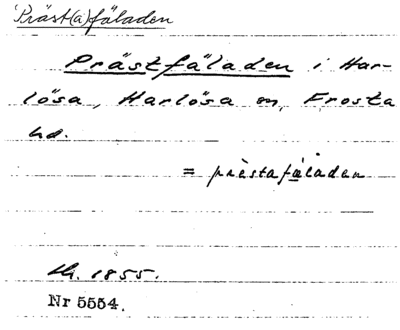 Präst(a)fäladen
Prästfäladen i Har-
lösa, Harlösa sn, Frosta
hd.
= prästafäladen
1855.
Nr 5554.